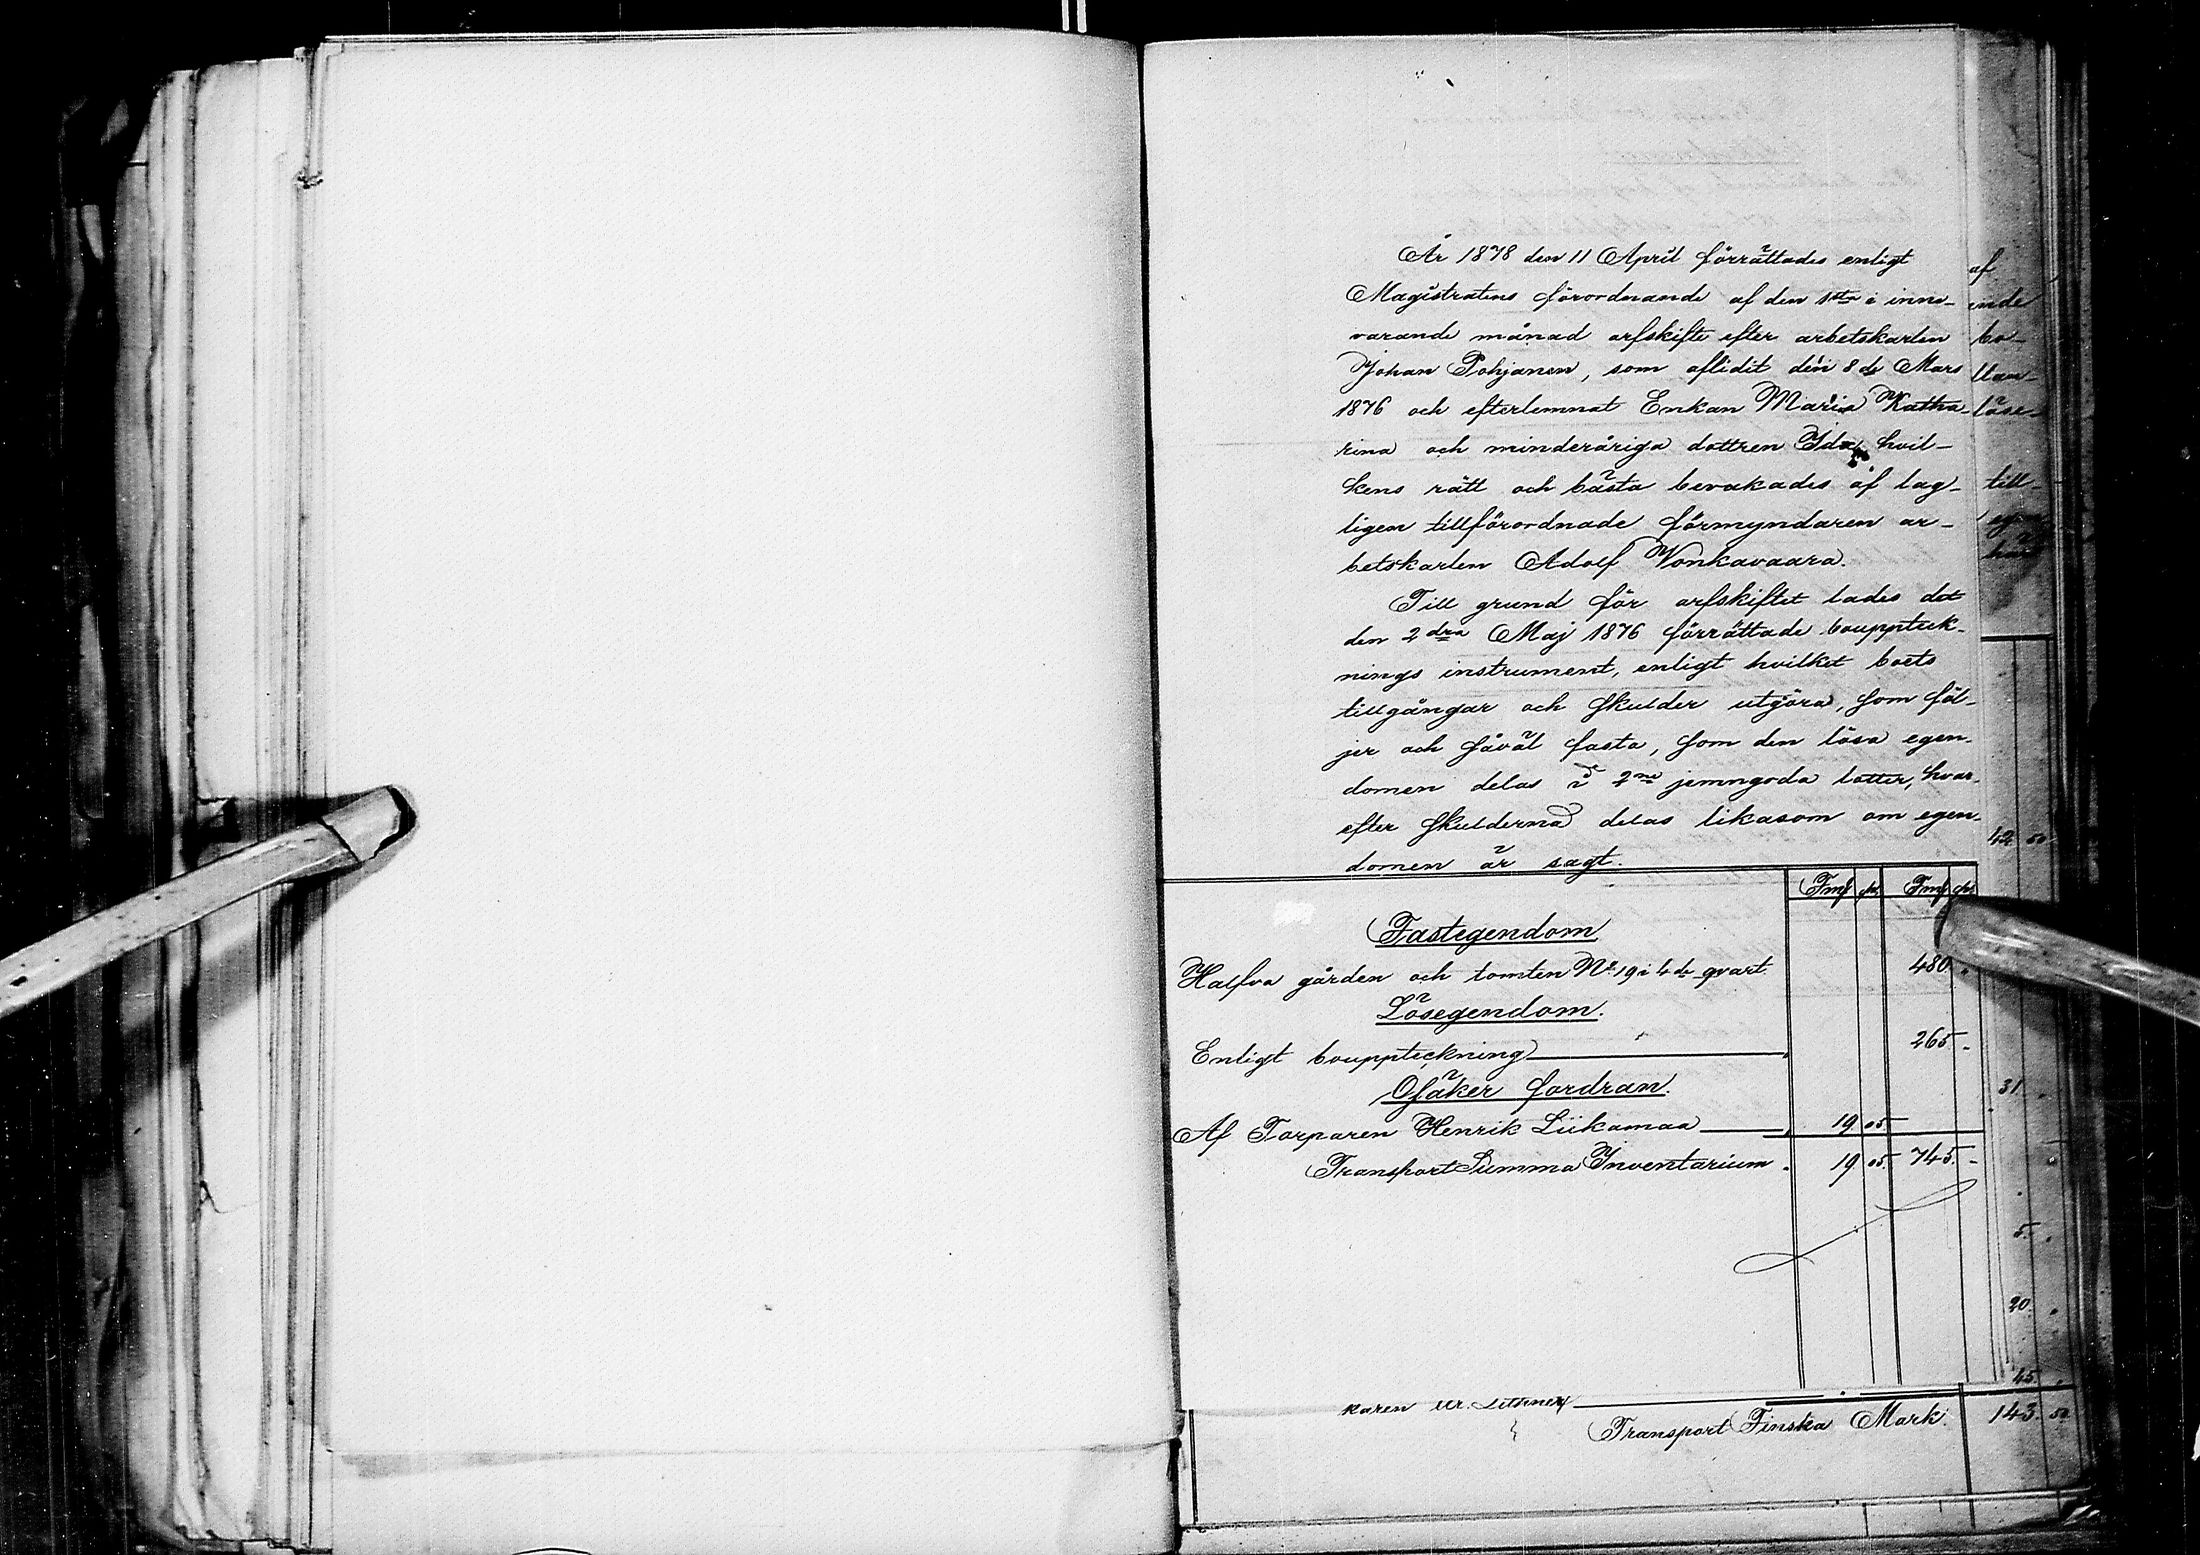 År 1878 den 11 April förrättades enligt
Magistratens förordnande af den 1sta i inne-
varande månad arfskifte efter arbetskarlen
Johan Pohjanen, som aflidit den 8de Mars
1876 och efterlemnat Enkan Maria Katha-
rina och minderåriga dottren Ida, hvil-
kens rätt och bästa bevakades af lag-
ligen tillförordnade förmyndaren ar-
betskarlen Adolf Vonkavaara.
Till grund för arfskiftet lades det
den 2dra Maj 1876 förrättade bouppteck-
nings instrument, enligt hvilket boets
tillgångar och skulder utgöra, som föl-
jer och såväl fasta, som den lösa egen-
domen delas i 2ne jemngoda lotter, hvar-
efter skulderna delas likasom om egen-
domen är sagt.
Fmf pi Fmf pi
Fastegendom
Halfva gården och tomten No 19 i 4de qvart. 480 "
Lösegendom.
Enligt bouppteckning 265 -
Osäker fordran.
Af Torparen Henrik Liikamaa 19 05
Transport Summa Inventarium 19 05 745 -
af
ende
bo-
löse-
till-
42 50
31
5
20
45
karen Ur. Lithner
Transport Finska Mark 143 50